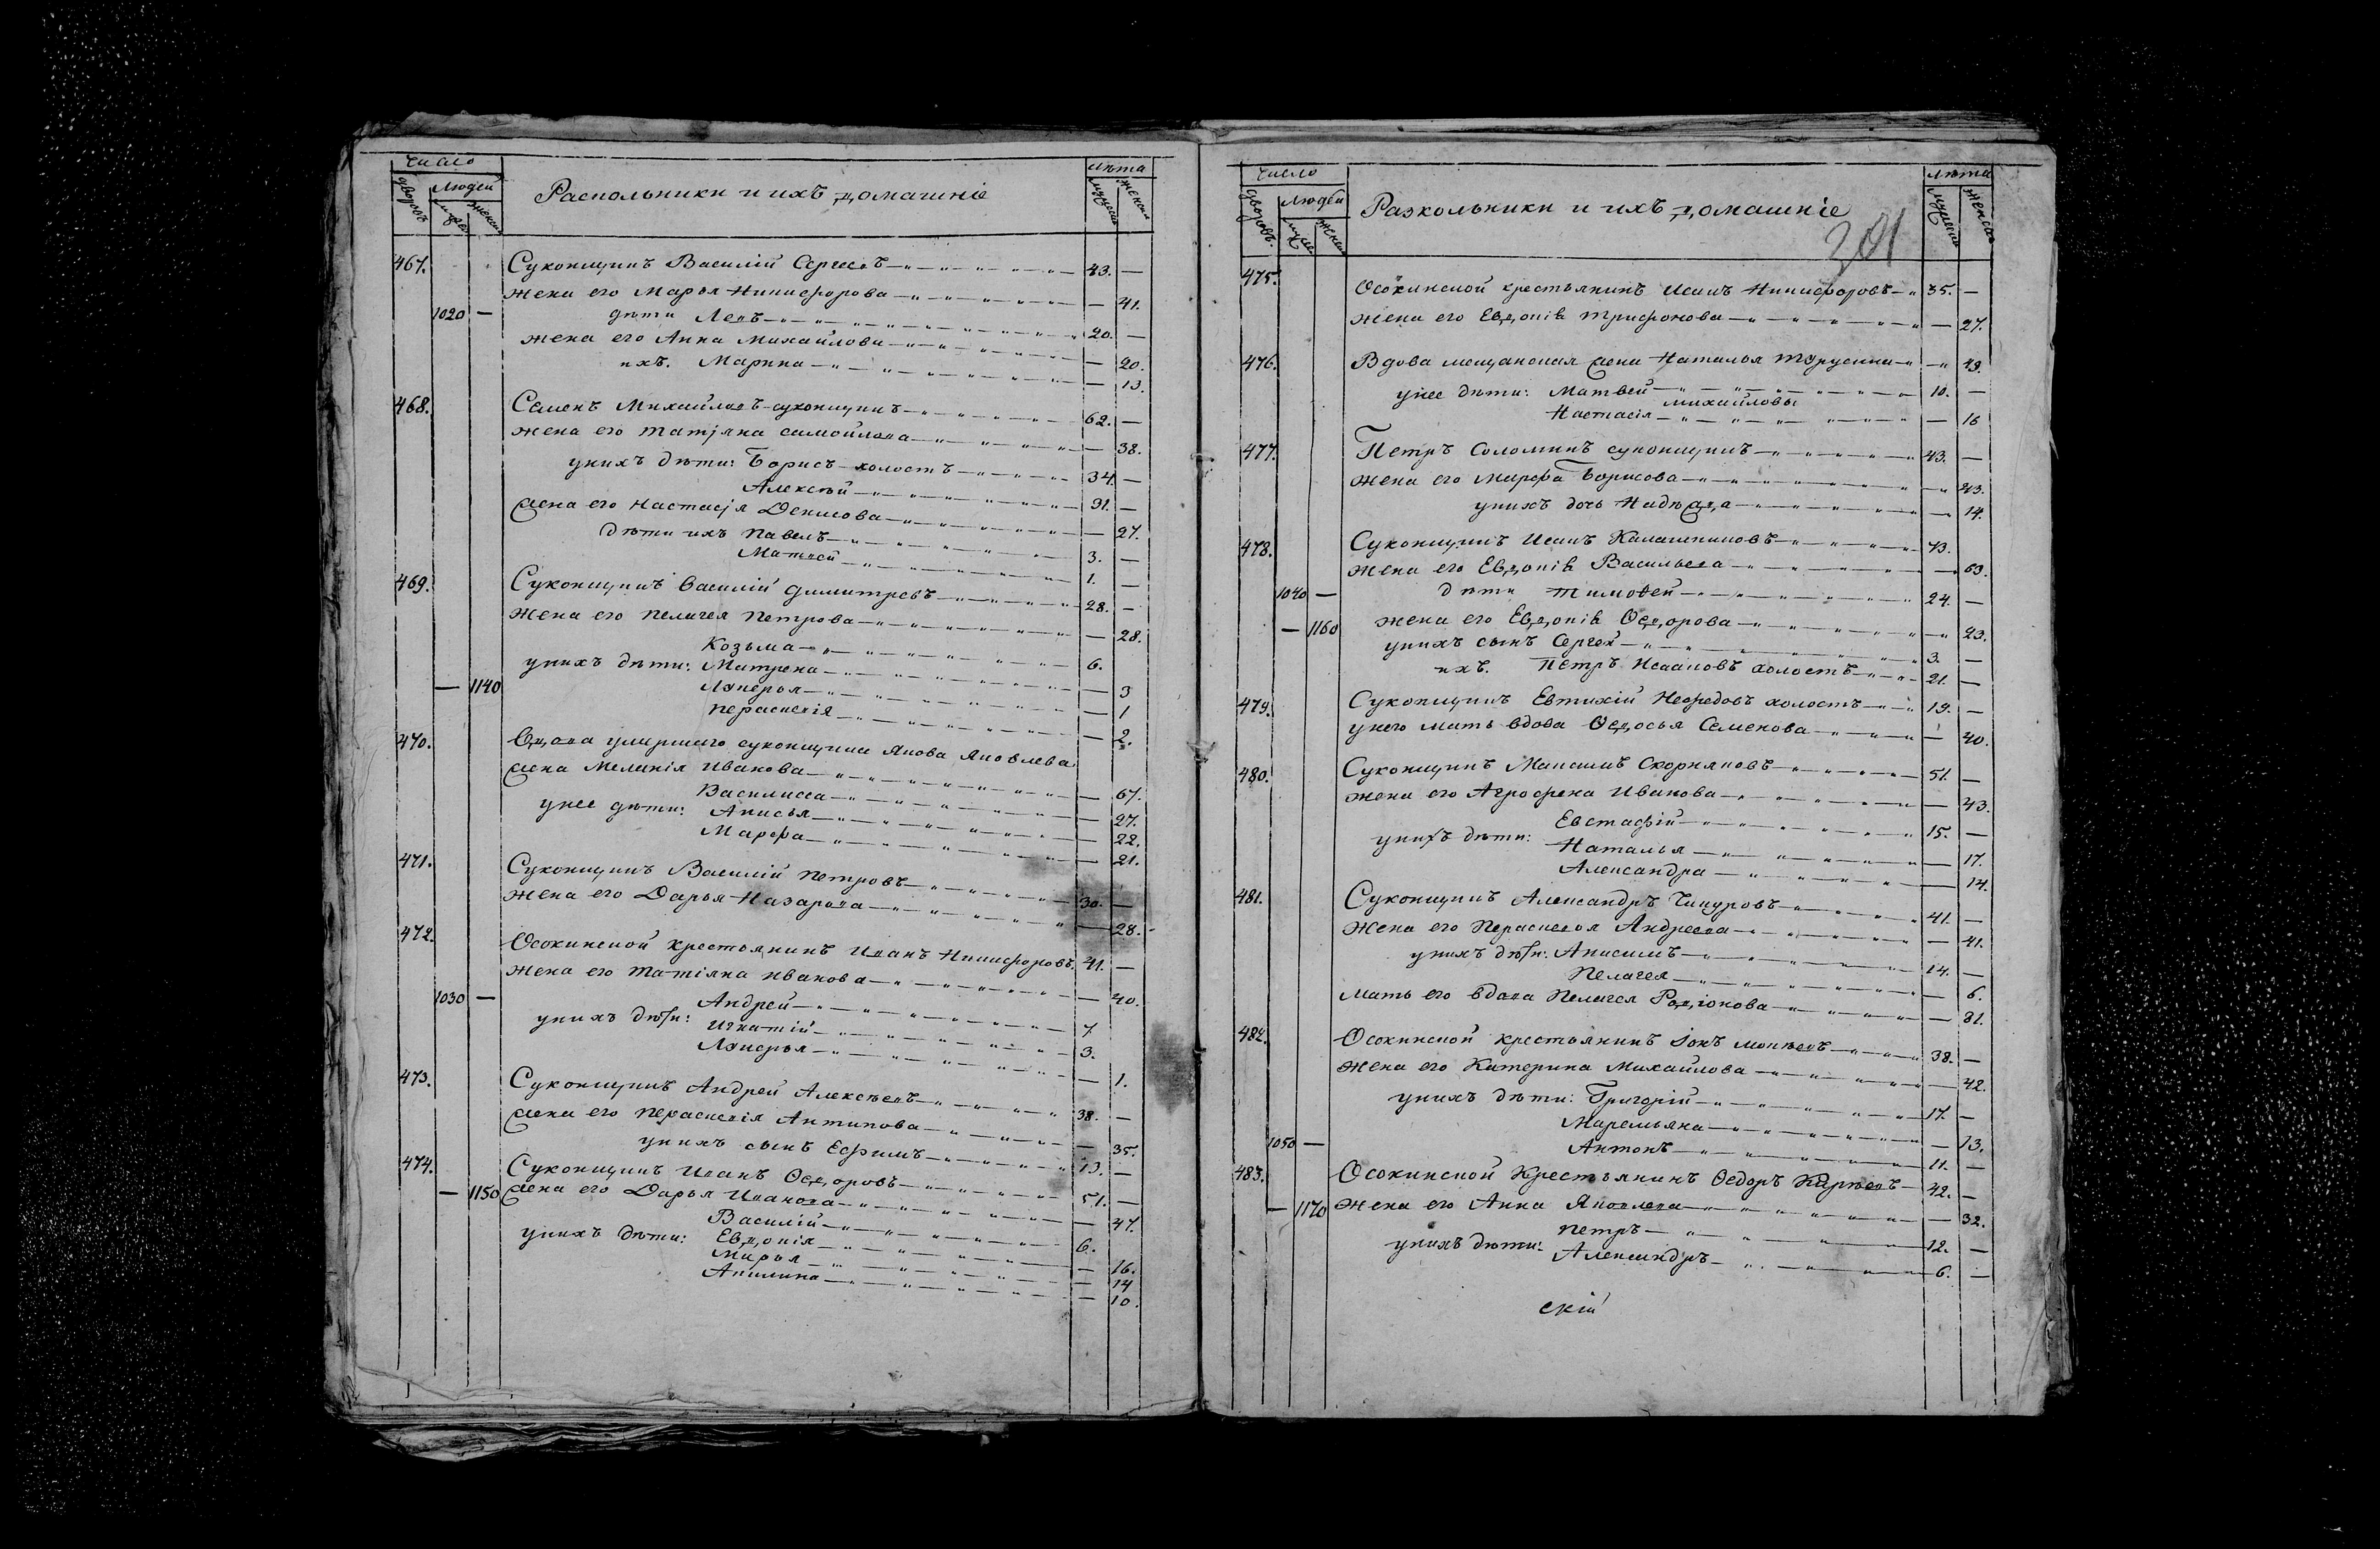 Число
Людей
Дворовъ
мужес.
женск.
Распольники и ихъ домашніе
Лѣта
мужеска
женска
467. Суконщикъ Василій Сергеевъ 43. —
Жена его Марья Никифорова — 41.
1020 — дѣти Левъ 20. —
жена его Анна Михайлова — 20.
ихъ. Марина — 13.
468. Семенъ Михайловъ суконщикъ 62. —
Жена его Татіяна Самойлова — 38.
у нихъ дѣти: Борисъ холостъ 34. —
Алексѣй 31. —
Жена его Настасія Денисова — 27.
дѣти ихъ Павелъ 3. —
Матвей 1. —
469. Суконщикъ Василій Димитревъ 28. —
Жена его Пелагея Петрова — 28.
Козьма 6.
у нихъ дѣти: Матрена — 3
— 1140 Лукерья — 1
Пераскевія — 2.
470. Вдова умершаго суконщика Якова Яковлева
Жена Меланія Иванова — 67.
Василисса — 27.
у нее дѣти: Анисья — 22.
Марфа — 21.
471. Суконщикъ Василій Петровъ 30. —
Жена его Дарья Назарова — 28.
472. Осокинской крестьянинъ Иванъ Никифоровъ 41. —
Жена его Татіяна Иванова — 40.
1030 — Андрей 7
у нихъ дѣти: Игнатій 3.
Лукерья — 1.
473. Суконщикъ Андрей Алексѣевъ 38. —
Жена его Пераскевія Антипова — 35.
у нихъ сынъ Ефимъ 13. —
474. Суконщикъ Иванъ Ѳедоровъ 51. —
— 1150 Жена его Дарья Иванова — 47.
Василій 6.
у нихъ дѣти: Евдокія — 16.
Марья — 14
Акилина — 10.
Число
Людей
Дворовъ.
мужес
женск
Разкольники и ихъ домашніе
301
Лѣта
мужеска
женска
475. Осокинской крестьянинъ Исакъ Никифоровъ 35. —
Жена его Евдокія Трифонова — 27.
476. Вдова мещанская жена Наталья — 49.
у нее дѣти: Матвей 10. —
Михайловы
Настасія — 16
477. Петръ Соломинъ суконщикъ 43. —
Жена его Марфа Борисова — 43.
у нихъ дочь Надежда — 14.
478. Суконщикъ Исакъ Калашниковъ 43.
Жена его Евдокія Васильева — 63.
1040 — дѣти Тимоѳей 24. —
— 1160 жена его Евдокія Ѳедорова — 23.
у нихъ сынъ Сергей 3. —
ихъ. Петръ Исааковъ холостъ 21. —
479. Суконщикъ Евтихій Нефедовъ холостъ 19. —
у него мать вдова Ѳедосья Семенова — 40.
480. Суконщикъ Максимъ Скорняковъ 51. —
Жена его Агрофена Иванова — 43.
Евстафій 15. —
у нихъ дѣти: Наталья — 17.
Александра — 14.
481. Суконщикъ Александръ Чикуровъ 41. —
Жена его Пераскевья Андреева — 41.
у нихъ дѣти: Анисимъ 14. —
Пелагея — 6.
Мать его вдова Пелагея Родіонова — 81.
482. Осокинской крестьянинъ Іонъ 38. —
Жена его Катерина Михайлова — 42.
у нихъ дѣти: Григорій 17. —
Маремьяна — 13.
1050 — Антонъ 11. —
483. Осокинской Крестьянинъ Ѳедоръ Карпѣевъ 42. —
— 1170 Жена его Анна Яковлева — 32.
Петръ 12. —
у нихъ дѣти: Александръ 6. —
скій